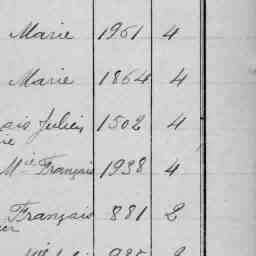 Marie 1961 4
Marie 1864 4
Julien 1502 4
Mie François 1938 4
François 881 2